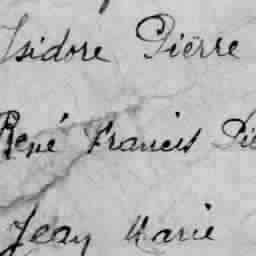 Isidore Pierre
René Francis Pie
Jean Marie